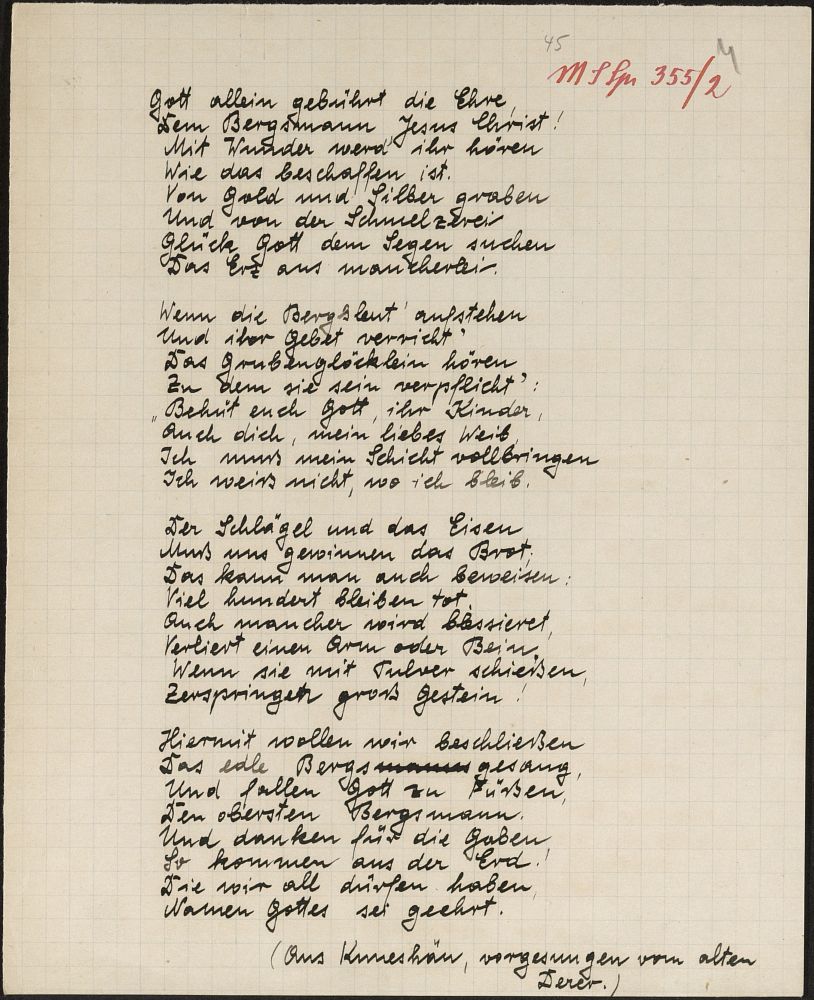 45 4
M S Spr 355/2
Gott allein gebührt die Ehre,
Dem Bergsmann Jesus Christ!
Mit Wunder werd' ihr hören
Wie das beschaffen ist.
Von Gold und Silber graben
Und von der Schmelzerei
Glück Gott dem Segen suchen
Das Erz aus mancherlei.
Wenn die Bergsleut' aufstehen
Und ihr Gebet verricht'
Das Grubenglöcklein hören
Zu dem sie sein verpflicht':
"Behüt euch Gott, ihr Kinder,
Auch dich, mein liebes Weib,
Ich muß mein Schicht vollbringen
Ich weiß nicht, wo ich bleib.
Der Schlägel und das Eisen
Muß uns gewinnen das Brot;
Das kann man auch beweisen:
Viel hundert bleiben tot.
Auch mancher wird blessieret,
Verliert einen Arm oder Bein,
Wenn sie mit Pulver schießen,
Zerspringen groß Gestein!
Hiermit wollen wir beschließen
Das edle Bergsmanns gesang,
Und fallen Gott zu Füßen,
Den obersten Bergsmann.
Und danken für die Gaben
So kommen aus der Erd!
Die wir all dürfen haben,
Namen Gottes sei geehrt.
(Aus Kuneshäu, vorgesungen vom alten
Derer.)